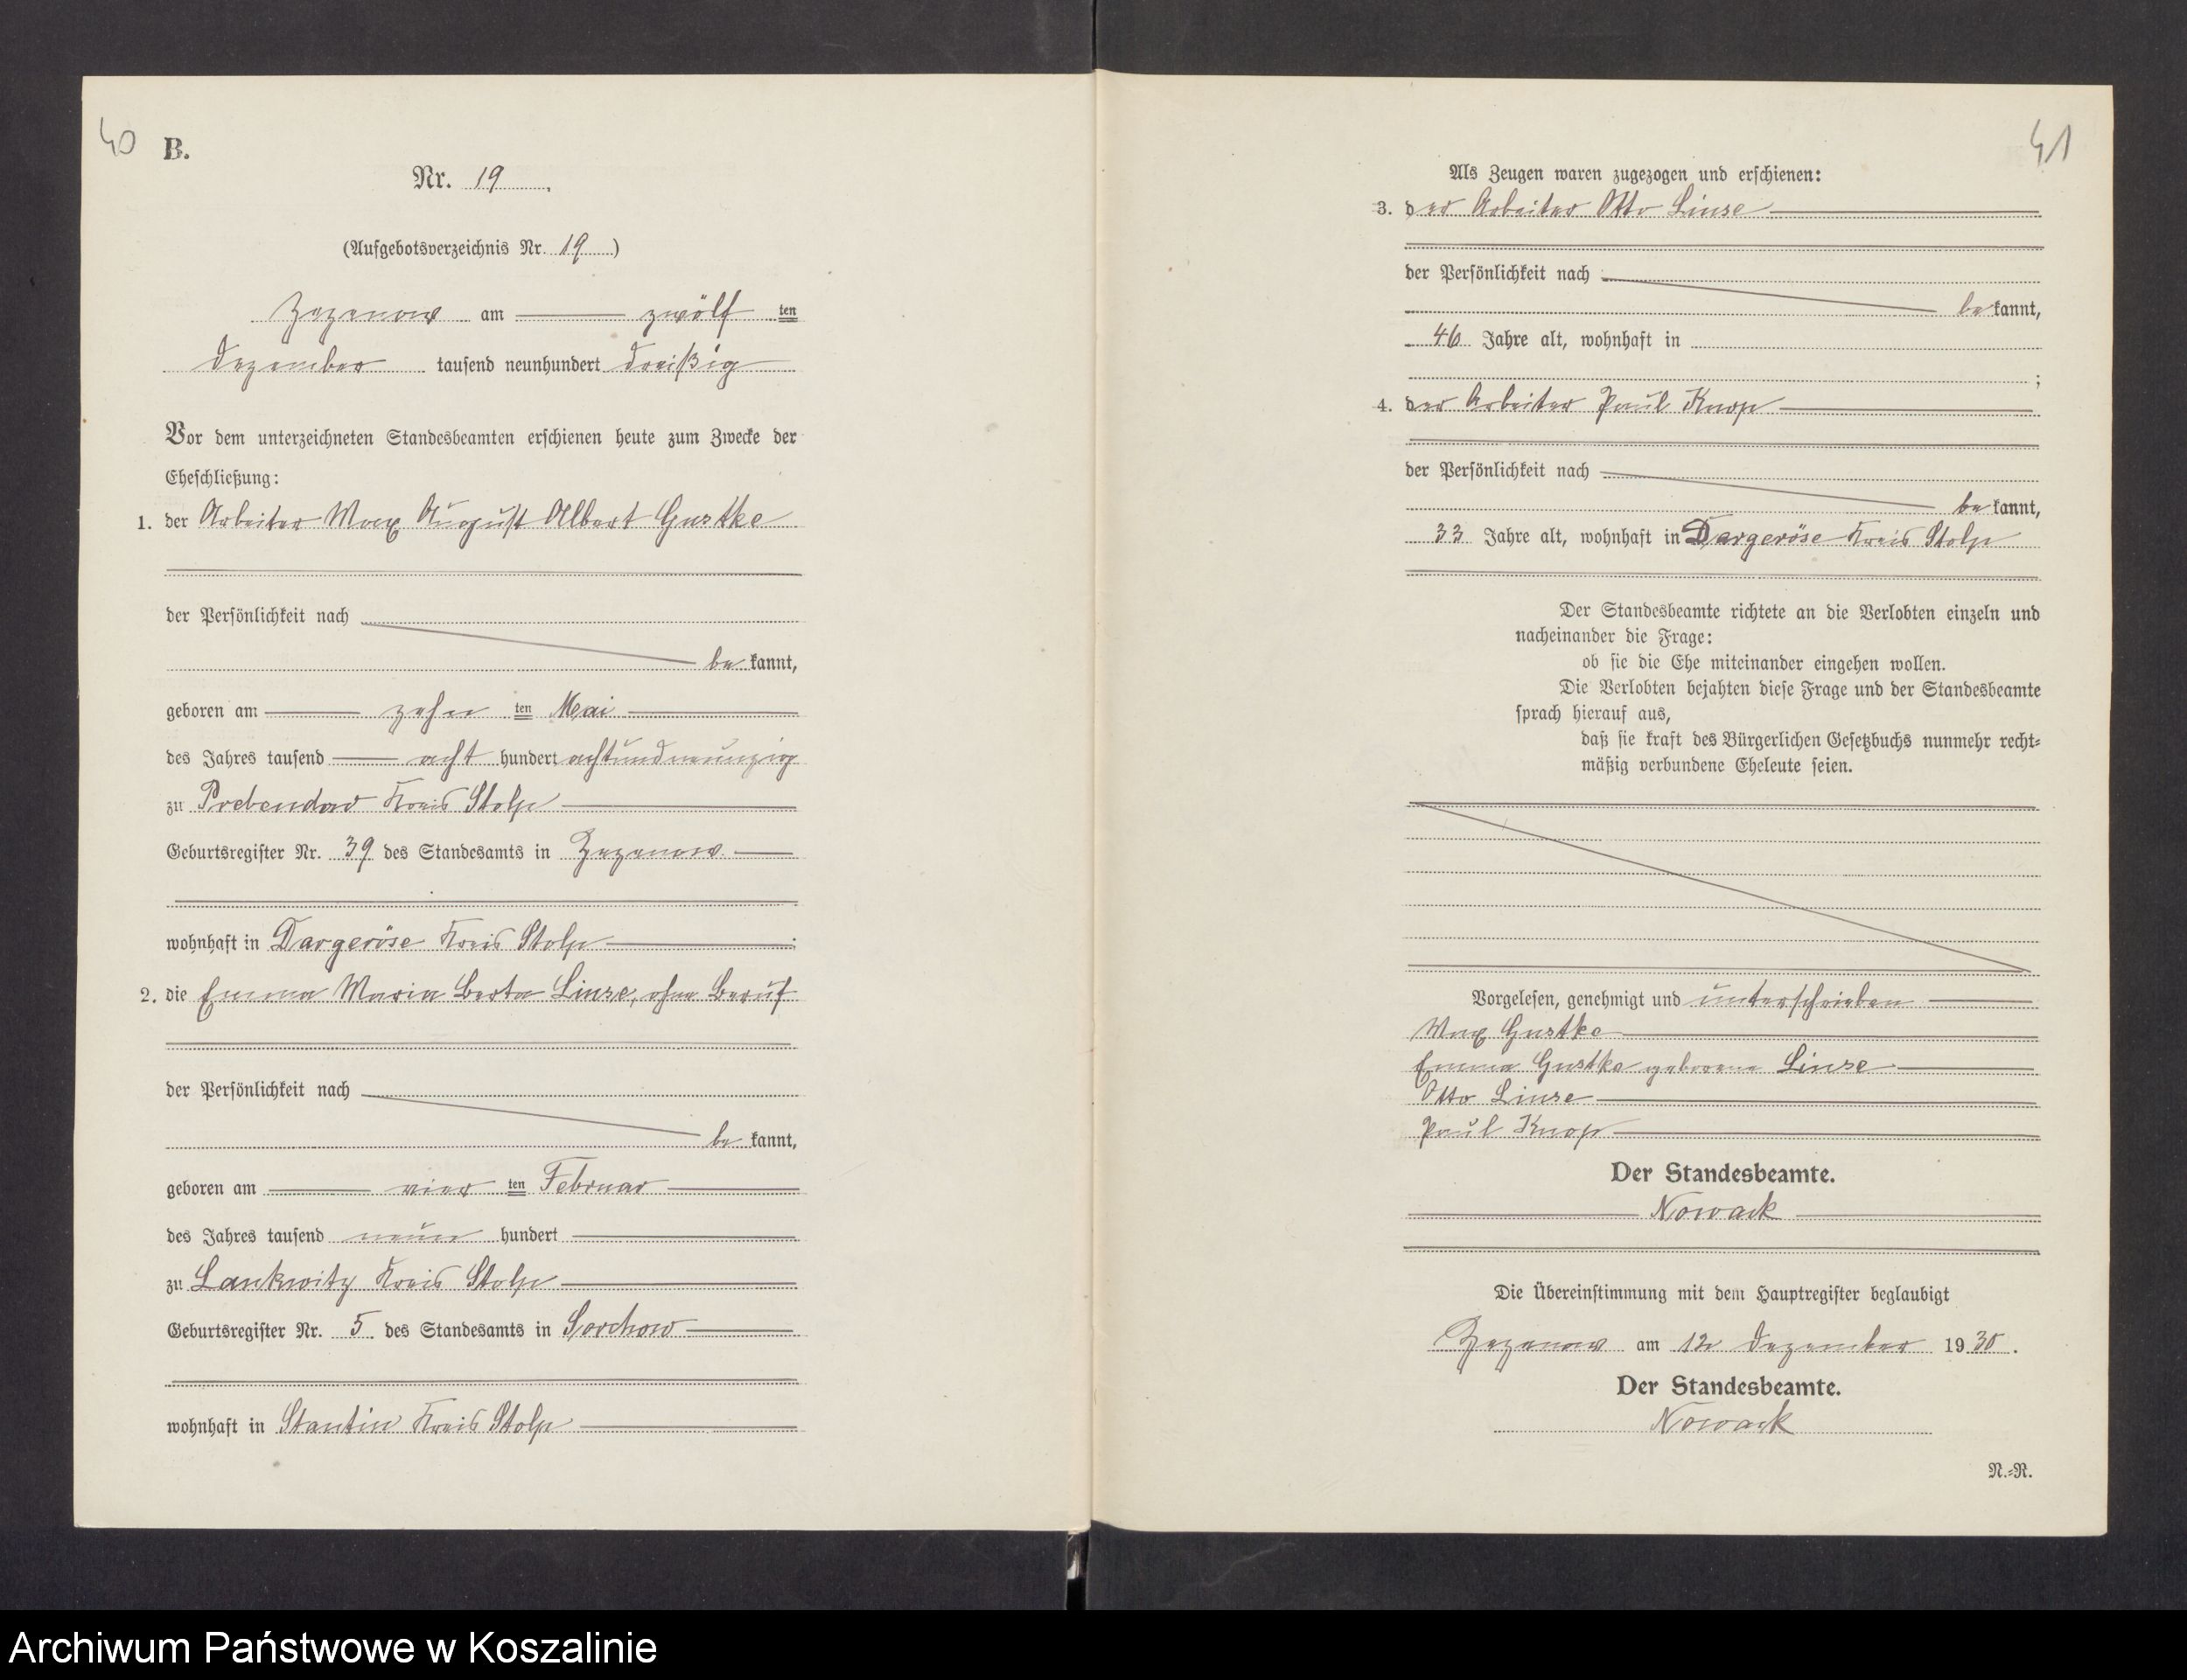 40
B.
Nr. 19.
(Aufgebotsverzeichnis Nr. 19)
Zezenow am zwölf ten
Dezember tausend neunhundert dreißig
Vor dem unterzeichneten Standesbeamten erschienen heute zum Zwecke der
Eheschließung:
1. der Arbeiter Max August Albert Gustke
der Persönlichkeit nach
bekannt,
geboren am zehn ten Mai
des Jahres tausend acht hundert achtundneunzig
zu Prebendow Kreis Stolp
Geburtsregister Nr. 39 des Standesamts in Zezenow
wohnhaft in Dargeröse Kreis Stolp ;
2. die Emma Maria Berta Linse, ohne Beruf
der Persönlichkeit nach
bekannt,
geboren am vier ten Februar
des Jahres tausend neun hundert
zu Lankwitz Kreis Stolp
Geburtsregister Nr. 5 des Standesamts in Sorchow
wohnhaft in Stantin Kreis Stolp
41
Als Zeugen waren zugezogen und erschienen:
3. der Arbeiter Otto Linse
der Persönlichkeit nach
bekannt,
46 Jahre alt, wohnhaft in
;
4. der Arbeiter Paul Knop
der Persönlichkeit nach
bekannt,
33 Jahre alt, wohnhaft in Dargeröse Kreis Stolp
Der Standesbeamte richtete an die Verlobten einzeln und
nacheinander die Frage:
ob sie die Ehe miteinander eingehen wollen.
Die Verlobten bejahten diese Frage und der Standesbeamte
sprach hierauf aus,
daß sie kraft des Bürgerlichen Gesetzbuchs nunmehr recht-
mäßig verbundene Eheleute seien.
Vorgelesen, genehmigt und unterschrieben
Max Gustke
Emma Gustke geborene Linse
Otto Linse
Paul Knop
Der Standesbeamte.
Nowack
Die Übereinstimmung mit dem Hauptregister beglaubigt
Zezenow am 12 Dezember 1930.
Der Standesbeamte.
Nowack
N.-R.
Archiwum Państwowe w Koszalinie